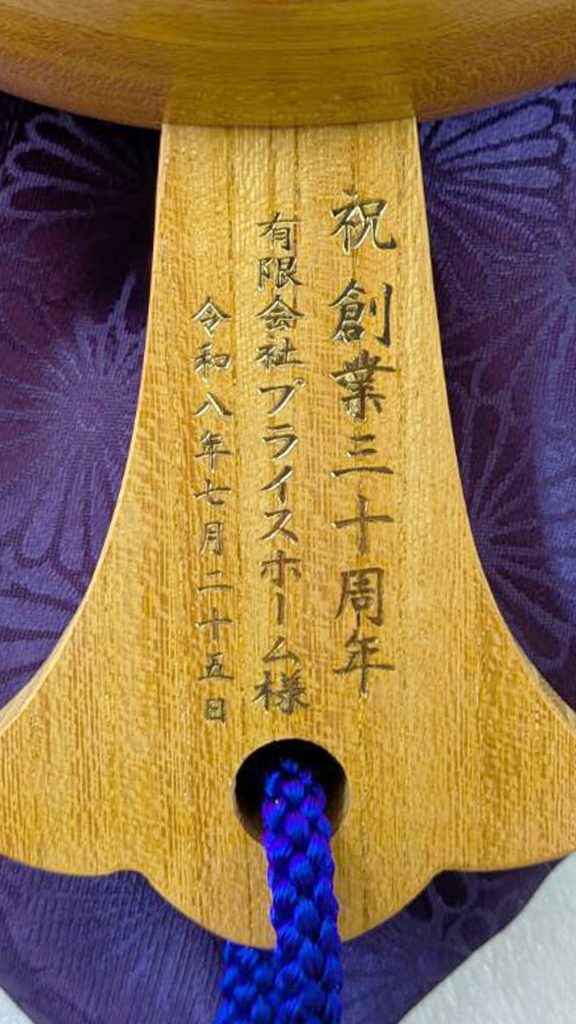 祝 創業三十周年
有限会社プライスホーム様
令和八年七月二十五日